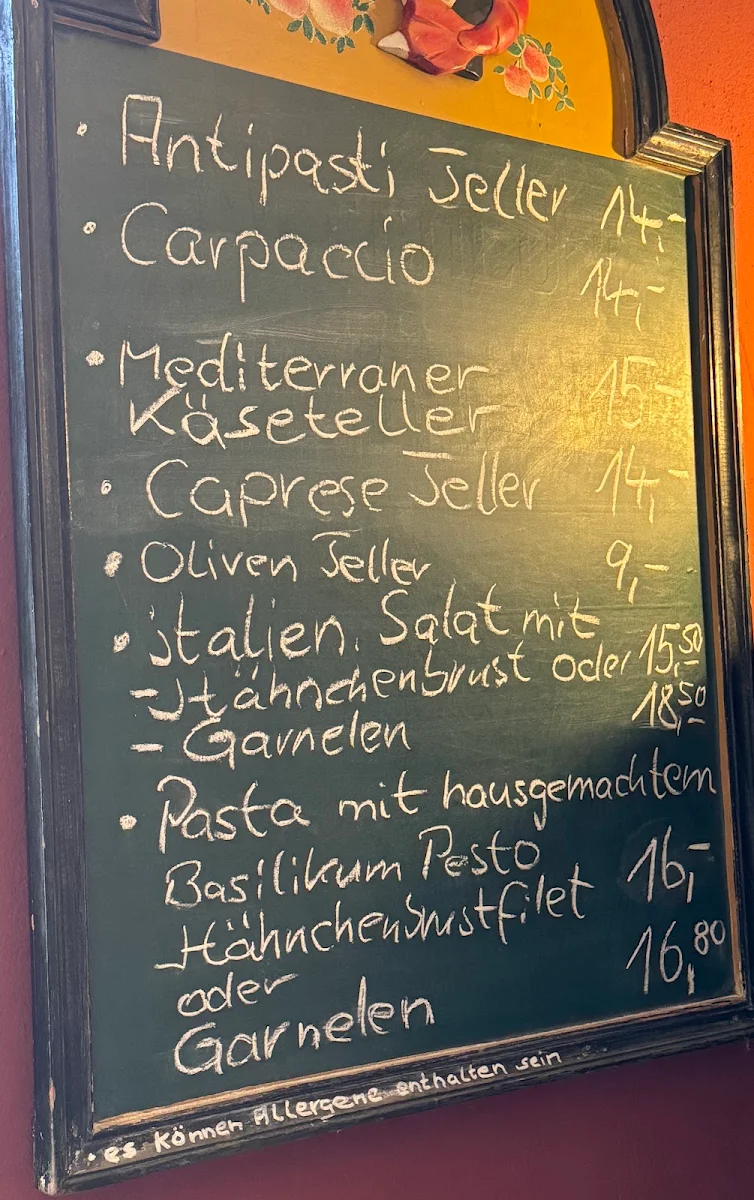 • Antipasti Teller 14,-
• Carpaccio 14,-
• Mediterraner
Käseteller 15,-
• Caprese Teller 14,-
• Oliven Teller 9,-
• italien. Salat mit
- Hähnchenbrust oder 15,50
- Garnelen 18,50
• Pasta mit hausgemachtem
Basilikum Pesto
Hähnchenbrustfilet 16,-
oder 16,80
Garnelen
• es können Allergene enthalten sein